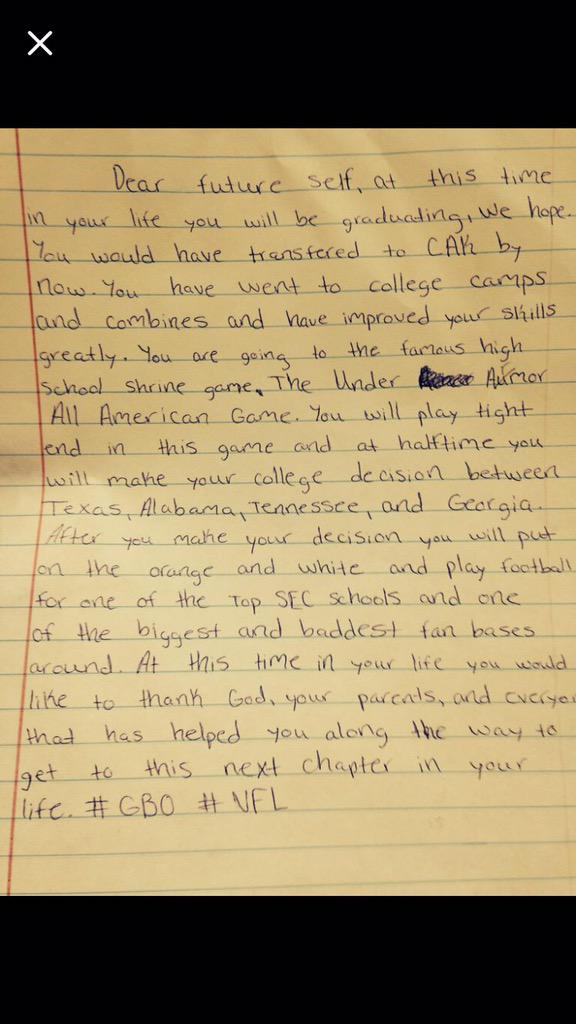 Dear future self, at this time
in your life you will be graduating, we hope.
You would have transfered to CAK by
now. You have went to college camps
and combines and have improved your skills
greatly. You are going to the famous high
school shrine game, The Under Aurmor
All American Game. You will play tight
end in this game and at halftime you
will make your college decision between
Texas, Alabama, Tennessee, and Georgia.
After you make your decision you will put
on the orange and white and play football
for one of the Top SEC schools and one
of the biggest and baddest fan bases
around. At this time in your life you would
like to thank God, your parents, and everyo
that has helped you along the way to
get to this next chapter in your
life. # GBO # NFL